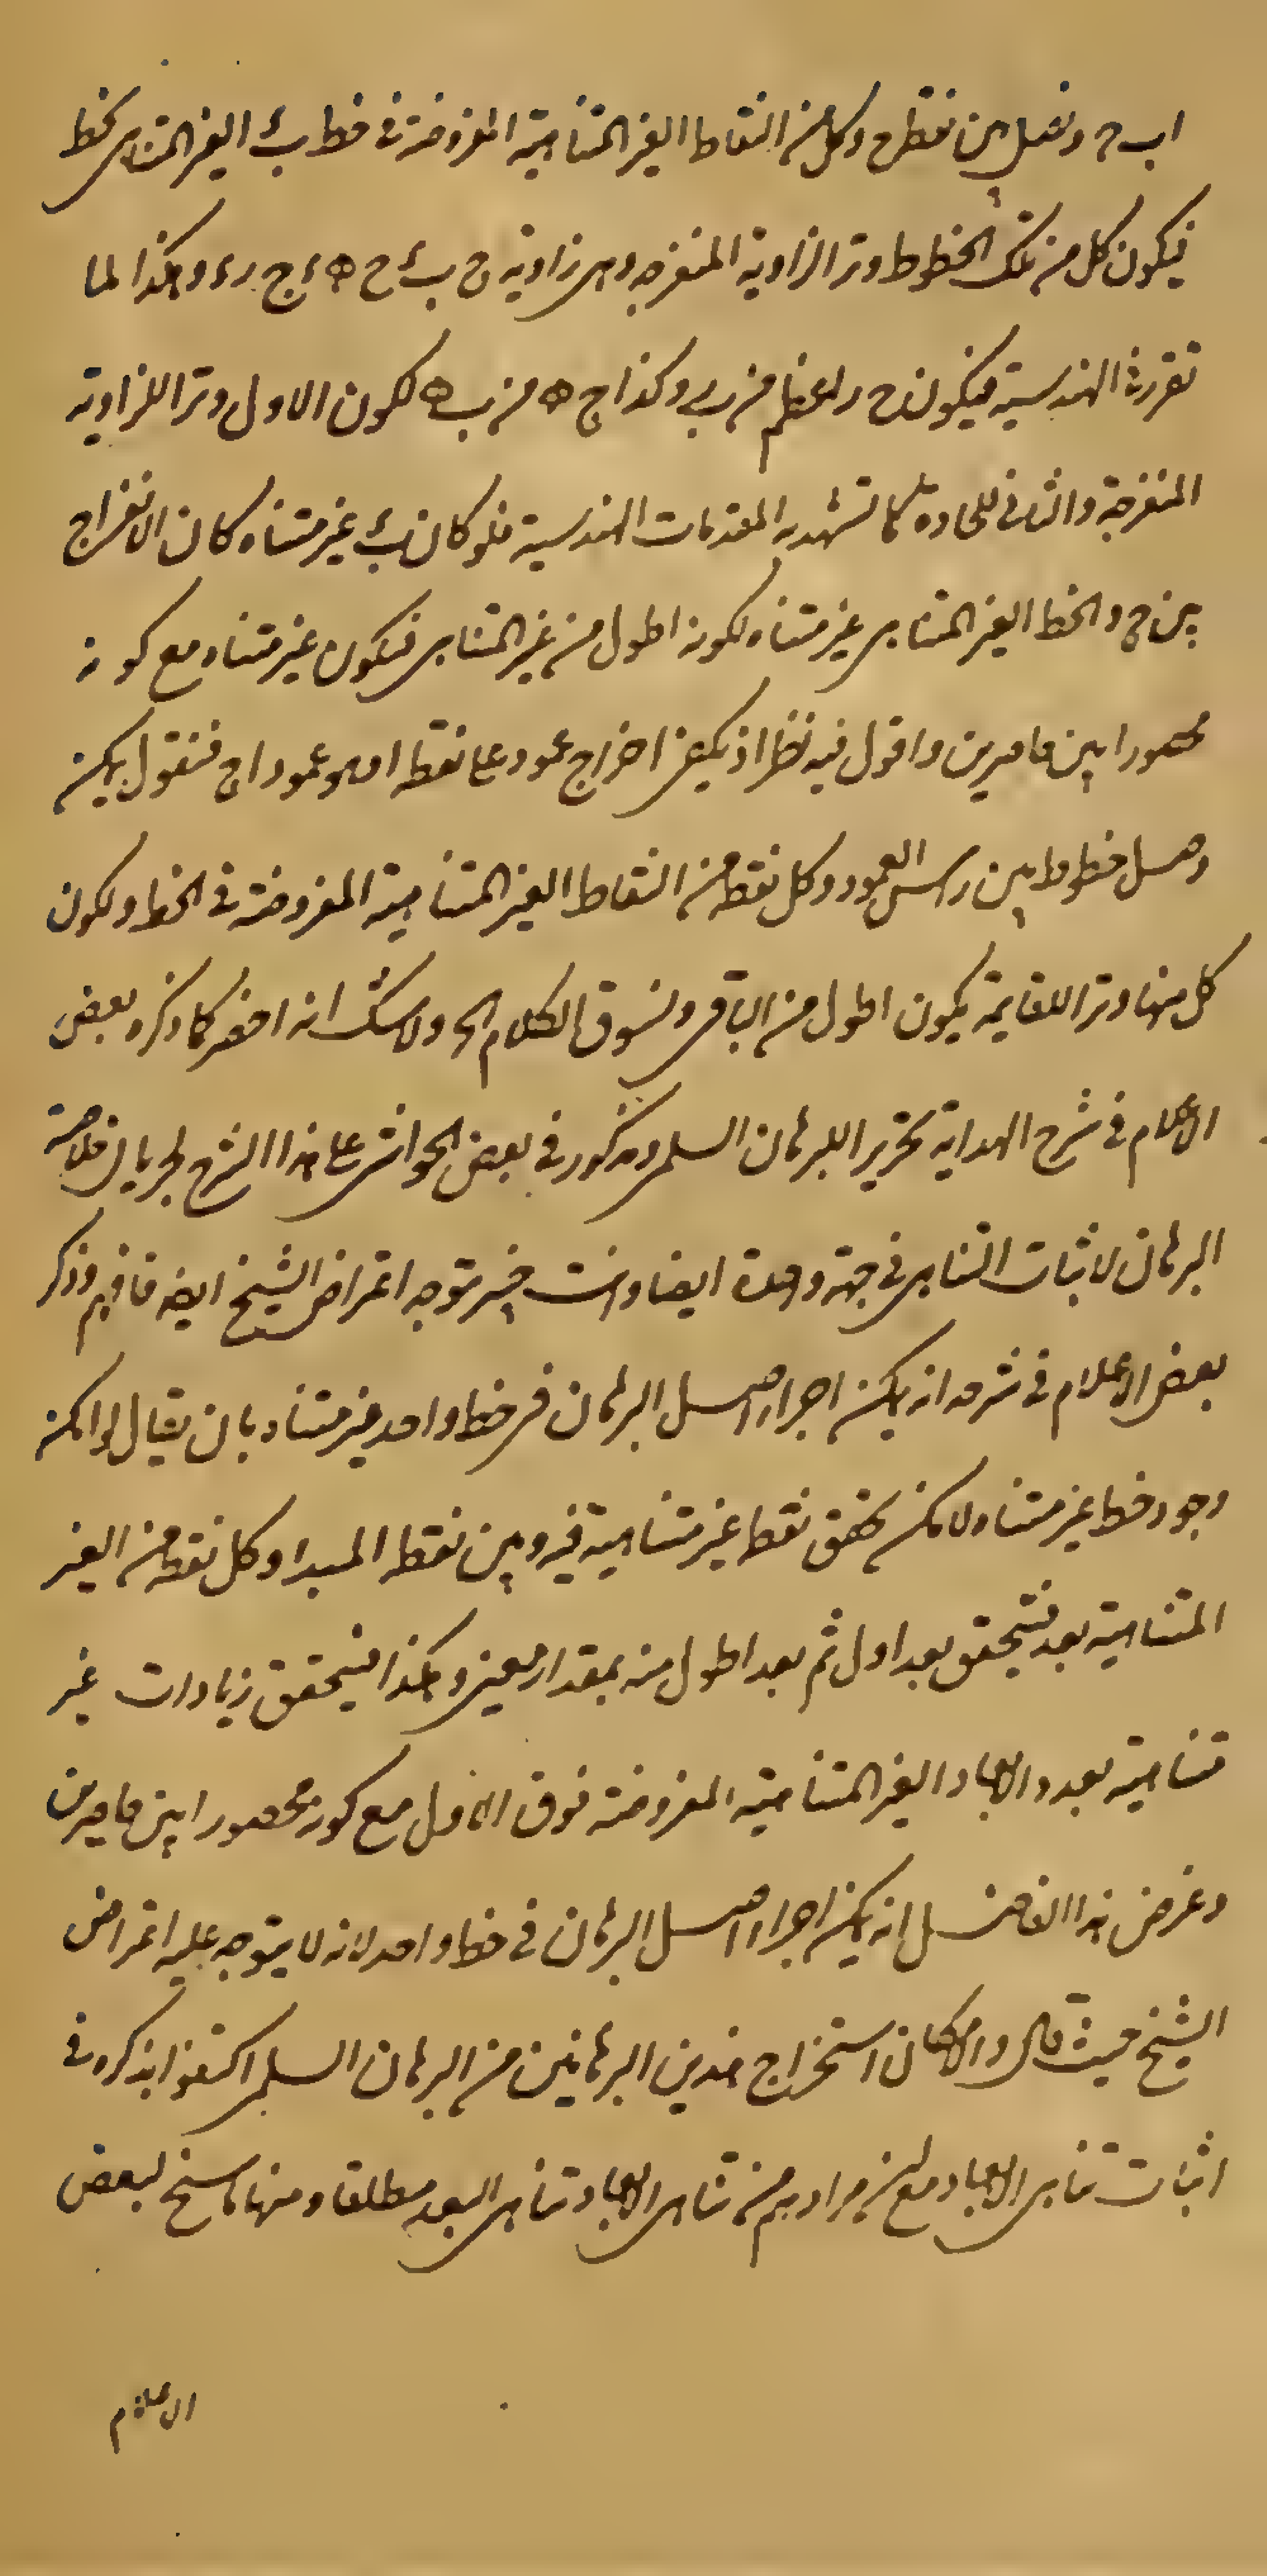 اب ج ونصل بين نقطة ج وكل من النقاط الغير المتناهية المفروضة في خط ب ء الغير المتناهى بخط
فيكون كل من تلك الخطوط وتر الزاوية المنفرجة وهى زاوية ج ب ء ج ه ء ج ر ء وهكذا لما
تقرر في الهندسية فيكون ج ر اعظم من ب ر وكذا ج ه من ب ه لكون الاول وترا للزاوية
المنفرجة والثانى للحادة كما تشهد به المقدمات الهندسية فلو كان ب ء غير متناه كان الانفراج
بين ج والخط الغير المتناهى غير متناه لكونه اطول من غير المتناهى فيكون غير متناه مع كونه
محصورا بين حاصرين واقول فيه نظر اذ يكفى اخراج عمود على نقطة ا وهو عمود اج فنقول يمكن
وصل خطوط بين راس العمود وكل نقطة من النقاط الغير المتناهية المفروضة في الخط ولكون
كل منها وترا للقايمة يكون اطول من الباقى ونسوق الكلام الخ ولا شك انه اخصر كما ذكره بعض
الاعلام في شرح الهداية تحرير البرهان السلمى ومذكور في بعض الحواشى على هذا الشرح لجريان خلاصة
البرهان لاثبات التناهى في جهة واحدة ايضا وانت خبير بتوجه اعتراض الشيخ ايضا فافهم وذكر
بعض الاعلام في شرحه انه يمكن اجراء اصل البرهان في خط واحد غير متناه بان يقال لو امكن
وجود خط غير متناه لامكن تحقق نقط غير متناهية فيه وبين نقطة المبدا وكل نقطة من الغير
المتناهية بعد فيتحقق بعد اول ثم بعد اطول منه بمقدار معين وهكذا فيتحقق زيادات غير
متناهية بعدد الابعاد الغير المتناهية المفروضة فوق الاول مع كونه محصورا بين حاصرين
وغرض هذا الفاضل انه يمكن اجراء اصل البرهان في خط واحد لانه لا يتوجه عليه اعتراض
الشيخ حيث قال ولامكان استخراج هذين البرهانين من البرهان السلمى اكتفوا بذكره في
اثبات تناهى الابعاد مع ان مرادهم من تناهى الابعاد تناهى البعد مطلقا ومنها ما سنح لبعض
الاعلام